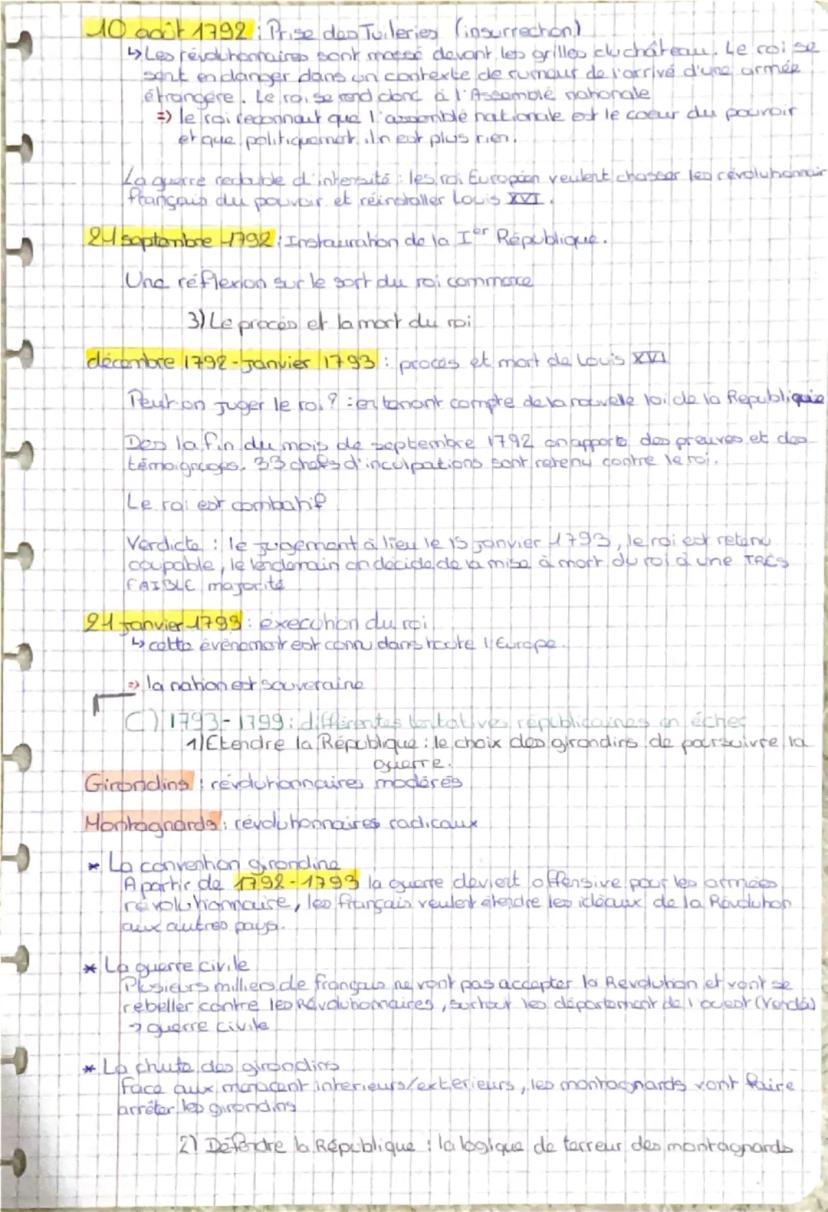 10 août 1792 : Prise des Tuileries (insurrection)
↳ Les révolutionnaires sont massé devant les grilles du château. Le roi se
sent en danger dans un contexte de rumeur de l'arrivé d'une armée
étrangère. Le roi se rend donc à l'Assemblé nationale
=> le roi reconnait que l'assemblé nationale est le coeur du pouvoir
et que politiquement il n'est plus rien.
La guerre redouble d'intensité : les roi Européen veulent chasser les révolutionnair
français du pouvoir et réinstaller Louis XVI.
21 septembre 1792 : Instauration de la Ier République.
Une réflexion sur le sort du roi commence
3) Le procès et la mort du roi
décembre 1792 - Janvier 1793 : procès et mort de Louis XVI
Peut on juger le roi ? : en tenant compte de la nouvelle loi de la République
Dès la fin du mois de septembre 1792 on apporte des preuves et des
témoignages. 33 chefs d'inculpations sont retenu contre le roi.
Le roi est combatif
Verdicte : le jugement à lieu le 15 janvier 1793, le roi est retenu
coupable, le lendemain on décide de la mise à mort du roi à une TRÈS
FAIBLE majorité
21 Janvier 1793 : execution du roi
↳ cette évènement est connu dans toute l'Europe.
=> la nation est souveraine
C) 1793-1799 : différentes tentatives républicaines en échec
1) Etendre la République : le choix des girondins de poursuivre la
guerre.
Girondins : révolutionnaires modérés
Montagnards : révolutionnaires radicaux
* La convention girondine
A partir de 1792-1793 la guerre devient offensive pour les armées
révolutionnaire, les français veulent étendre les idéaux de la Révolution
aux autres pays.
* La guerre civile
Plusieurs milliers de français ne vont pas accepter la Revolution et vont se
rebeller contre les Révolutionnaires, surtout les département de l'ouest (Vendé)
→ guerre civile
* La chute des girondins
Face aux menacent interieurs/exterieurs, les montagnards vont faire
arrêter les girondins
2) Défendre la République : la logique de terreur des montagnards